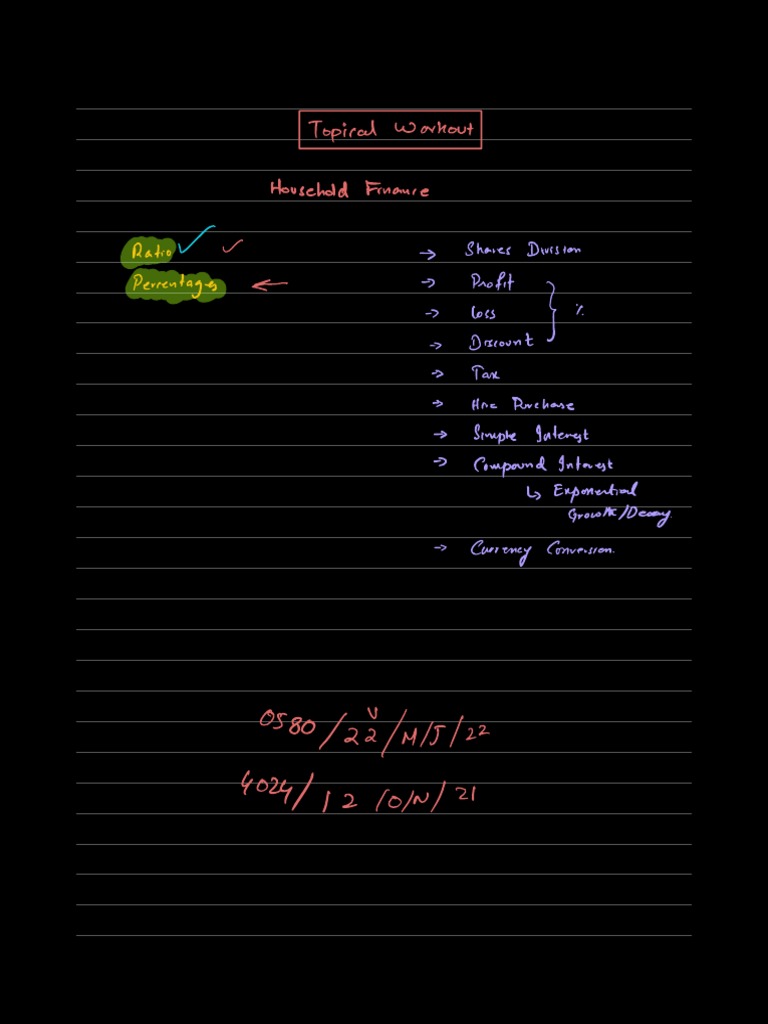 Topical Workout
Household Finance
Ratio
Percentages
→ Shares Division
→ Profit
→ Loss
→ Discount
%
→ Tax
→ Hire Purchase
→ Simple Interest
→ Compound Interest
↳ Exponential
Growth/Decay
→ Currency Conversion.
0580/22/M/J/22
4024/12/O/N/21